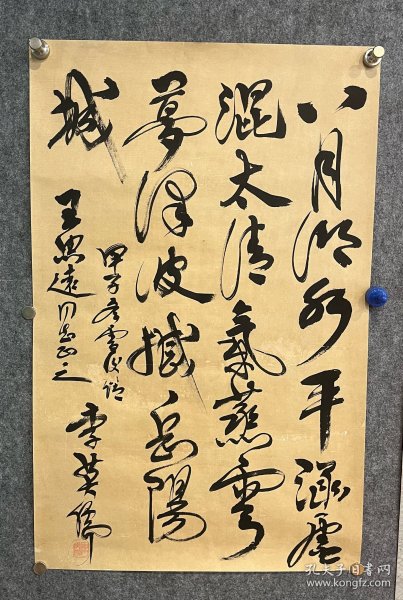 八月湖水平涵虚
混太清氣蒸雲
夢澤波撼岳陽
城
甲子冬雪後錄
王思遠同志正之
李英儒
孔夫子旧书网
www.kongfz.com